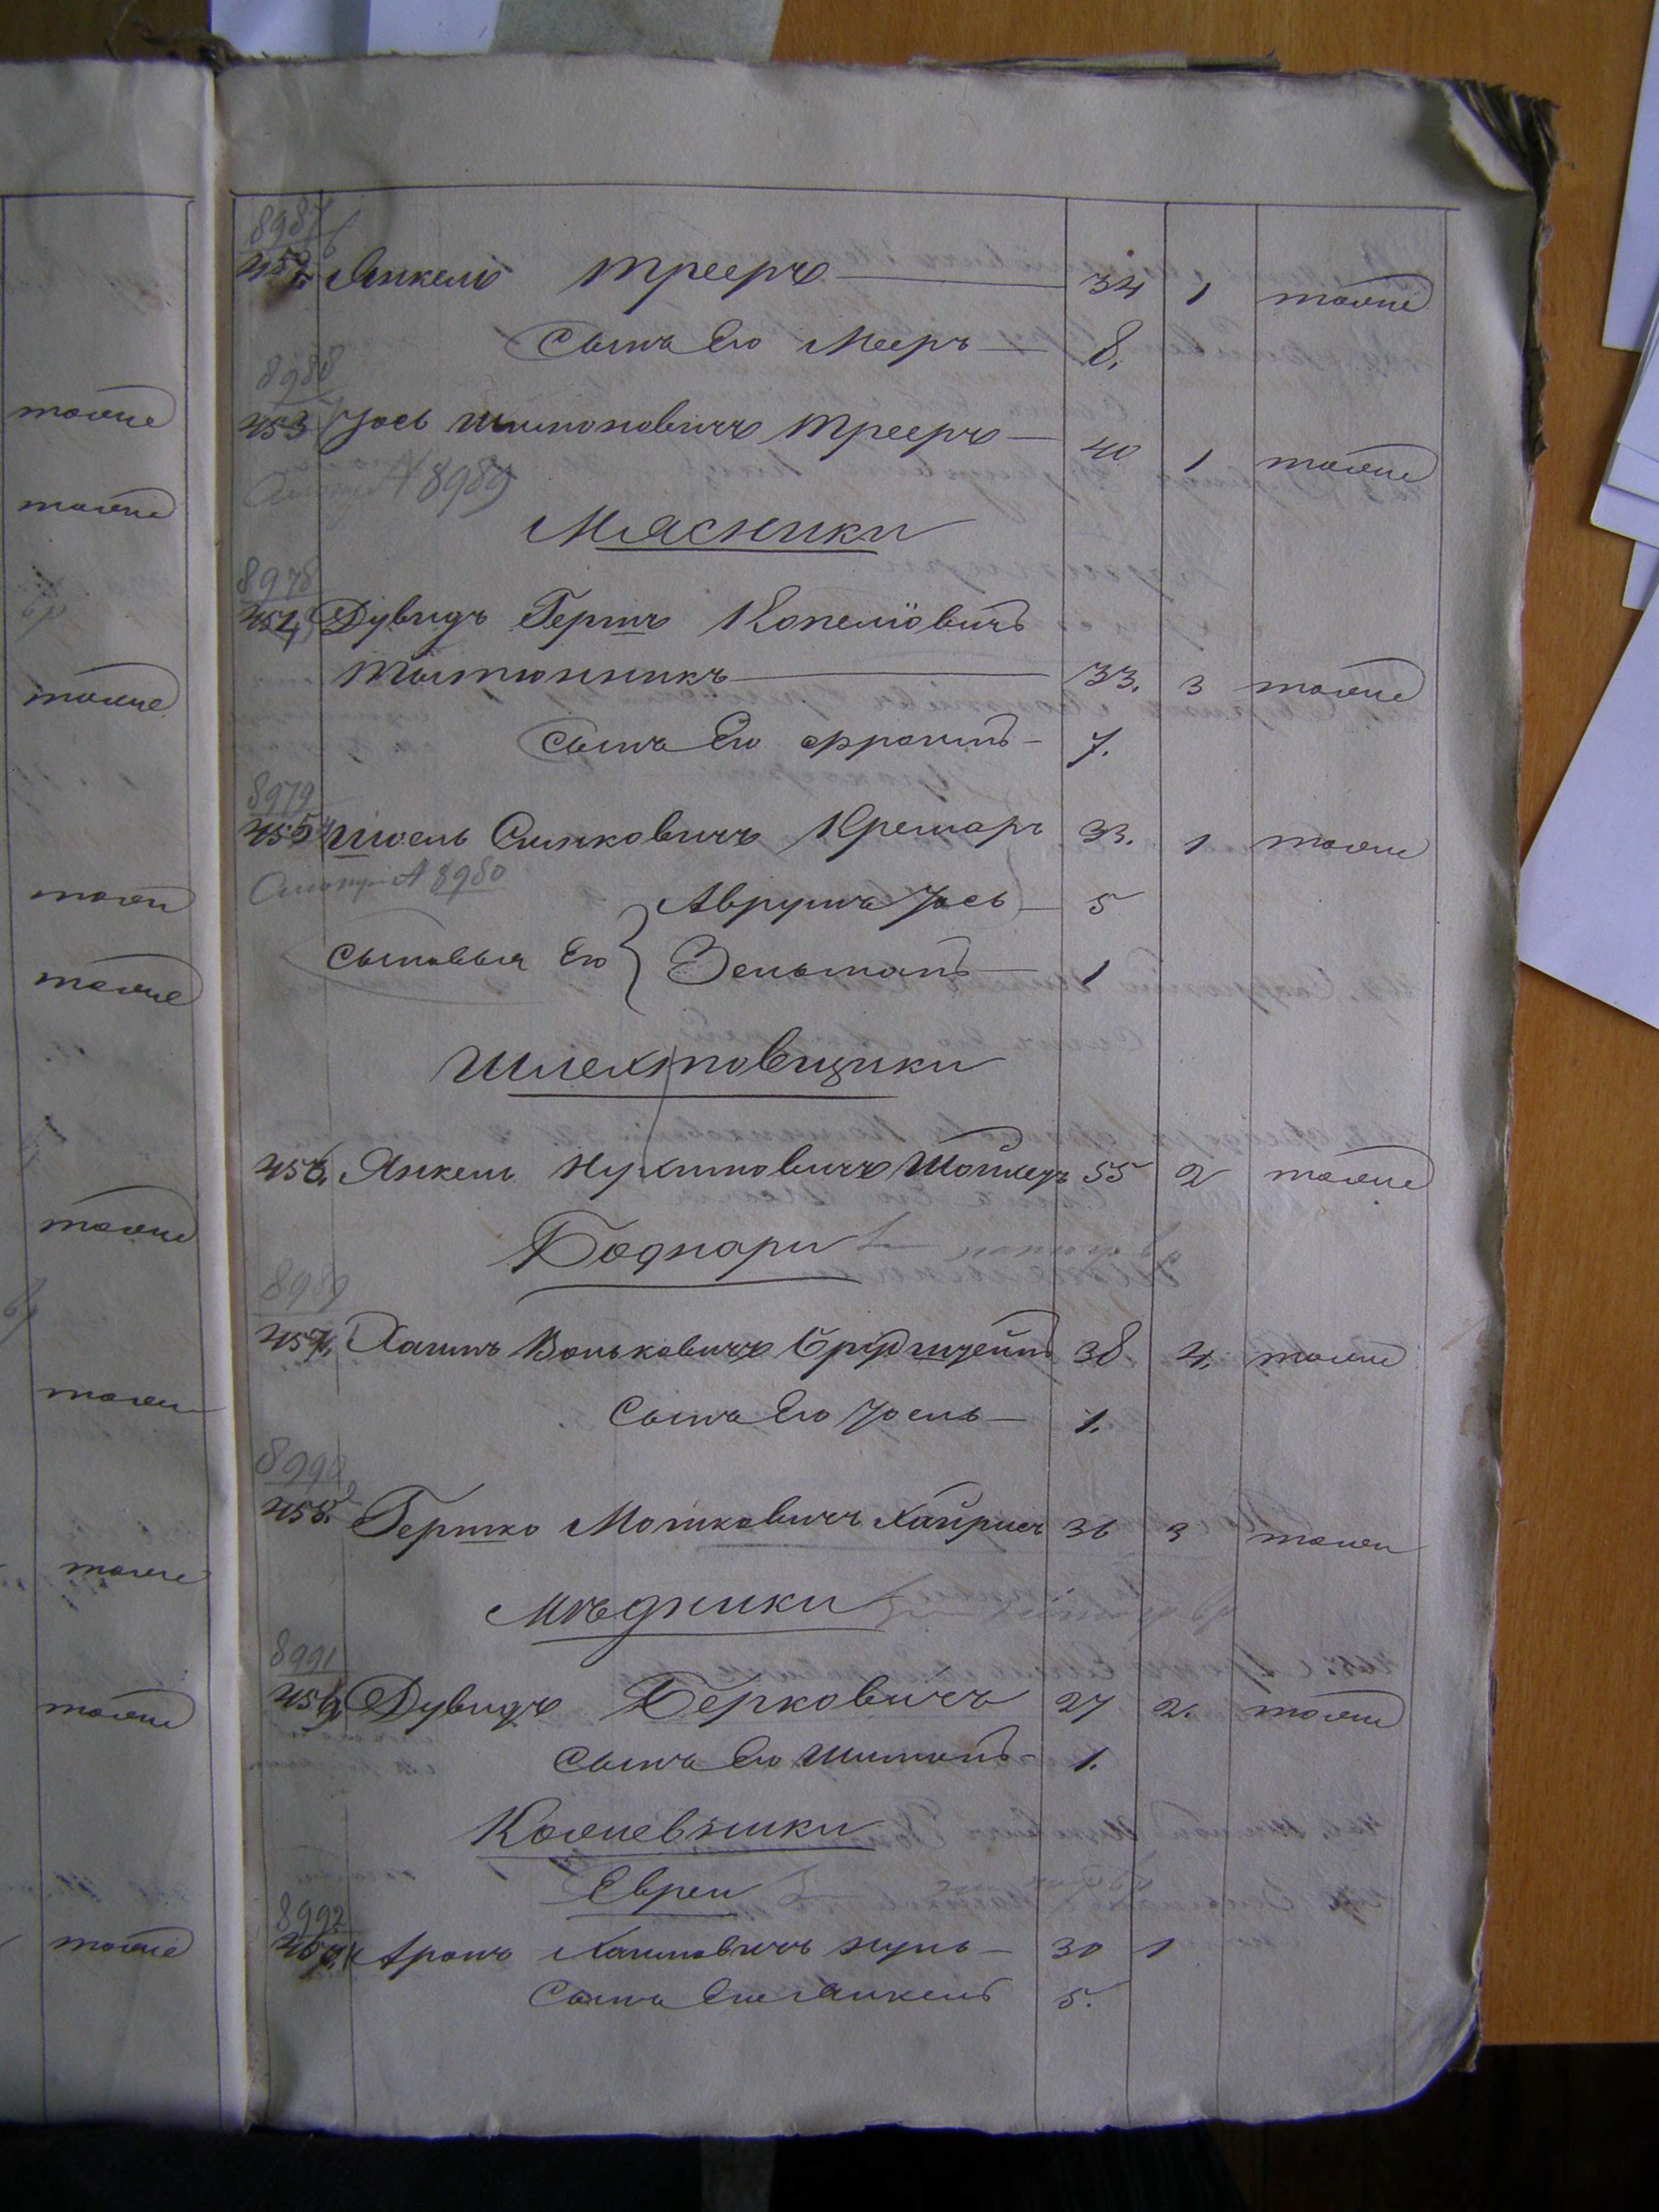 тоже
тоже
тоже
тоже
тоже
тоже
тоже
тоже
тоже
тоже
8987
452. Янкель Трееръ 34 1 тоже
Сынъ Его Мееръ 8.
8988
453 Іось Шимоновичъ Трееръ 40 1 тоже
№ 8989
Мясники
8978
454, Дувидъ Гершъ Копелiовичъ
Тютюнникъ 33. 3 тоже
Сынъ Его Фроимъ 7.
8979
455 Сынковичъ Кремаръ 33. 1 тоже
№ 8980
Аврумъ Іось 5
Сыновья Его Зельманъ 1
Шлехтовщики
456, Янкель Нухимовичъ 55 2 тоже
Боднари
8989
457, Хаимъ Вольковичъ 38 4, тоже
Сынъ Его Іосель 1.
8990
458. Гершко Мошковичъ 36 3 тоже
Мѣдники
8991
459, Дувидъ Берковичъ 27 2. тоже
Сынъ Его Шимонъ 1.
8992
Евреи
460, Аронъ Хаимовичъ 30 1
Сынъ Его Янкель 5.